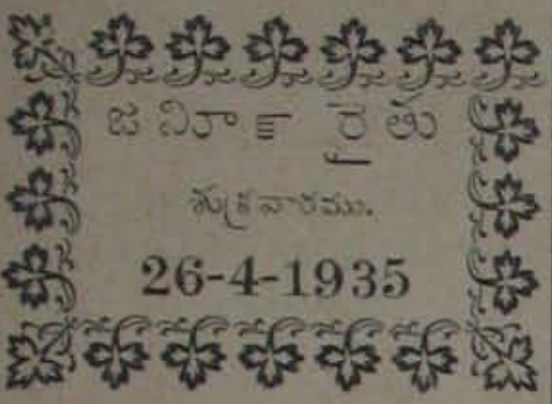 జమిన్ రైతు
శుక్రవారము.
26-4-1935